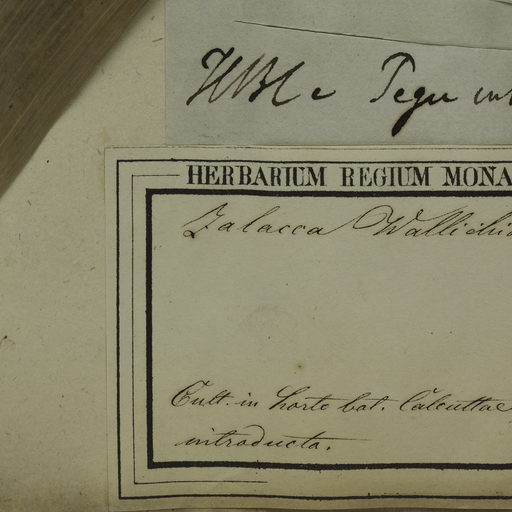 HBC e Pegu
HERBARIUM REGIUM MONA
Zalacca Wallichia
Cult. in horto bot. Calcuttae
introducta.